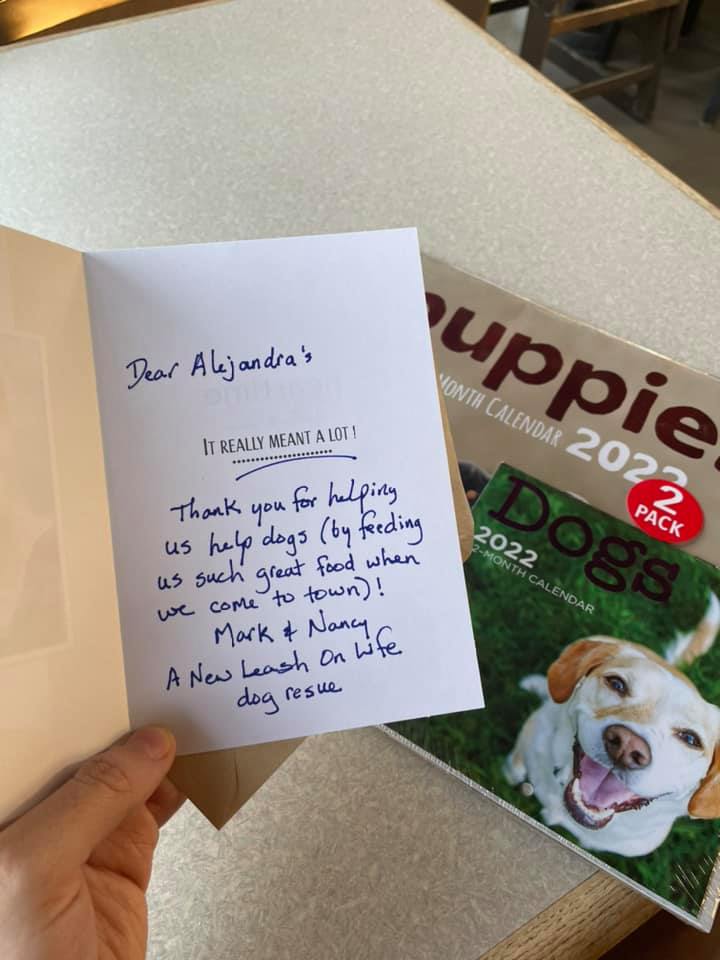 Dear Alejandra's
IT REALLY MEANT A LOT!
Thank you for helping
us help dogs (by feeding
us such great food when
we come to town)!
Mark & Nancy
A New Leash On Life
dog resue
puppies
MONTH CALENDAR 2022
2
PACK
Dogs
2022
2-MONTH CALENDAR